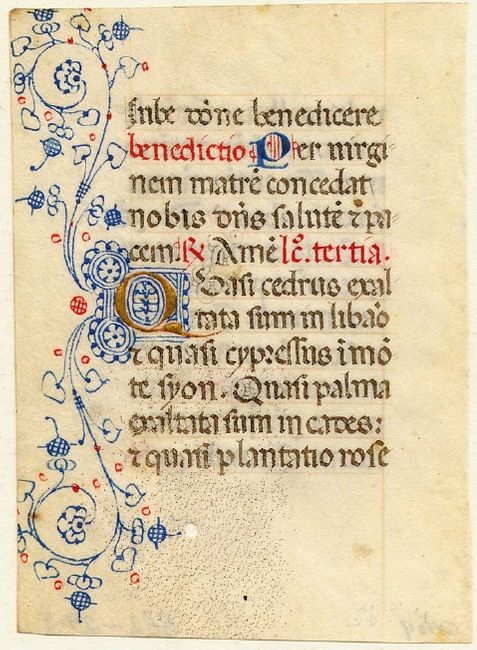 Iube dõne benedicere
benedictio Per virgi-
nem matrē concedat
nobis dñs salutē ⁊ pa-
cem. ℟ Amē lc̄. tertia.
Quasi cedrus exal
tata sum in libaõ
⁊ quasi cypressus ī mõ
te syon. Quasi palma
exaltata sum in cades:
⁊ quasi plantatio rose